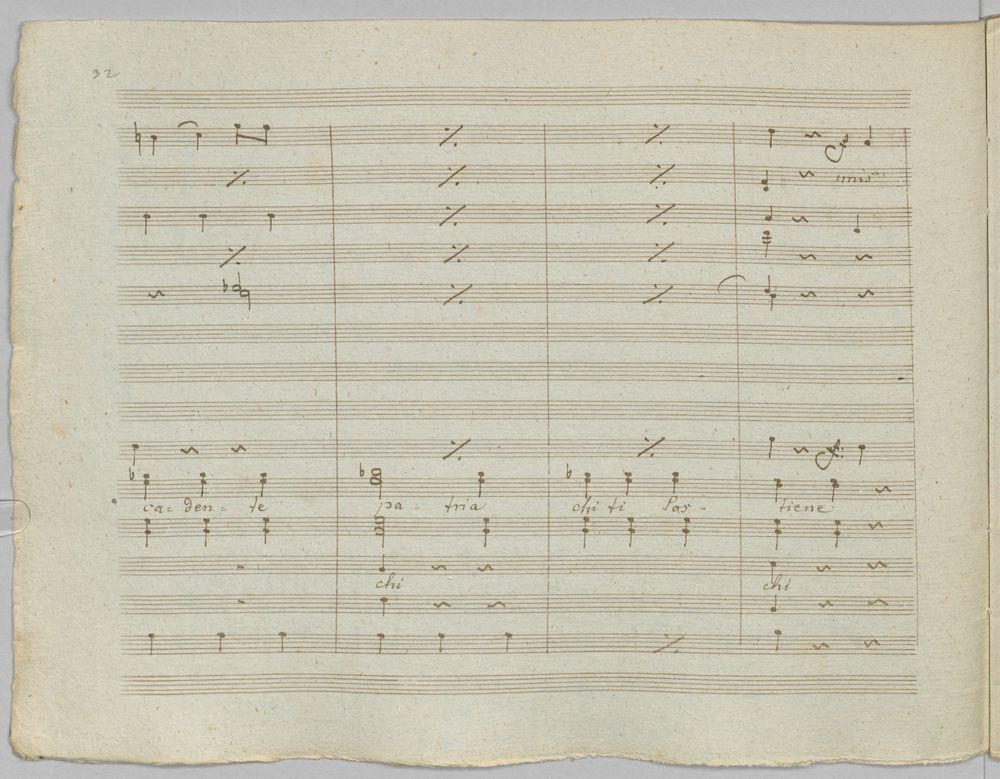 32
unis
ca- den- te pa- tria chi ti sos- tiene
chi chi